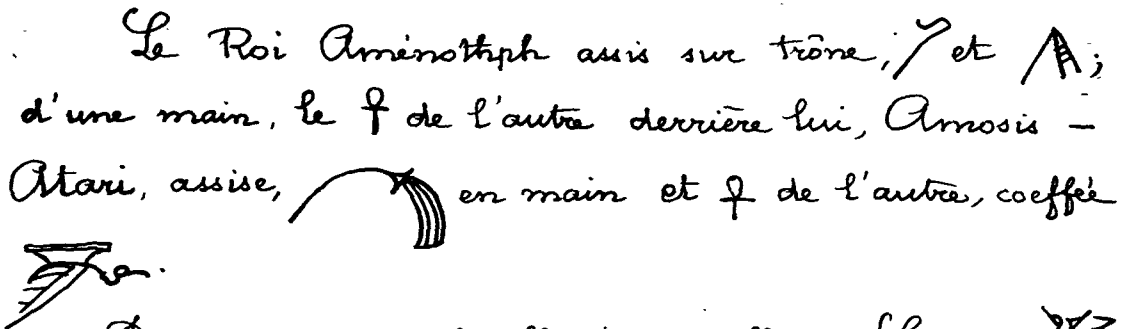 Le Roi Aménothph assis sur trône, et ;
d'une main, le ☥ de l'autre derrière lui, Amosis –
Atari, assise, en main et ☥ de l'autre, coeffée
.